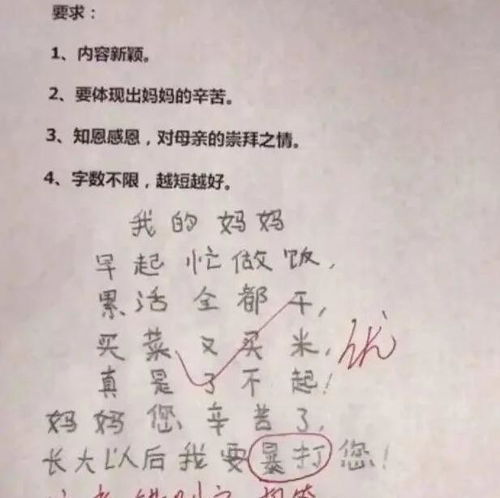 要求：
1、内容新颖。
2、要体现出妈妈的辛苦。
3、知恩感恩，对母亲的崇拜之情。
4、字数不限，越短越好。
我的妈妈
早起忙做饭，
累活全都干，
买菜又买米，
优
真是了不起！
妈妈您辛苦了，
长大以后我要暴打您！